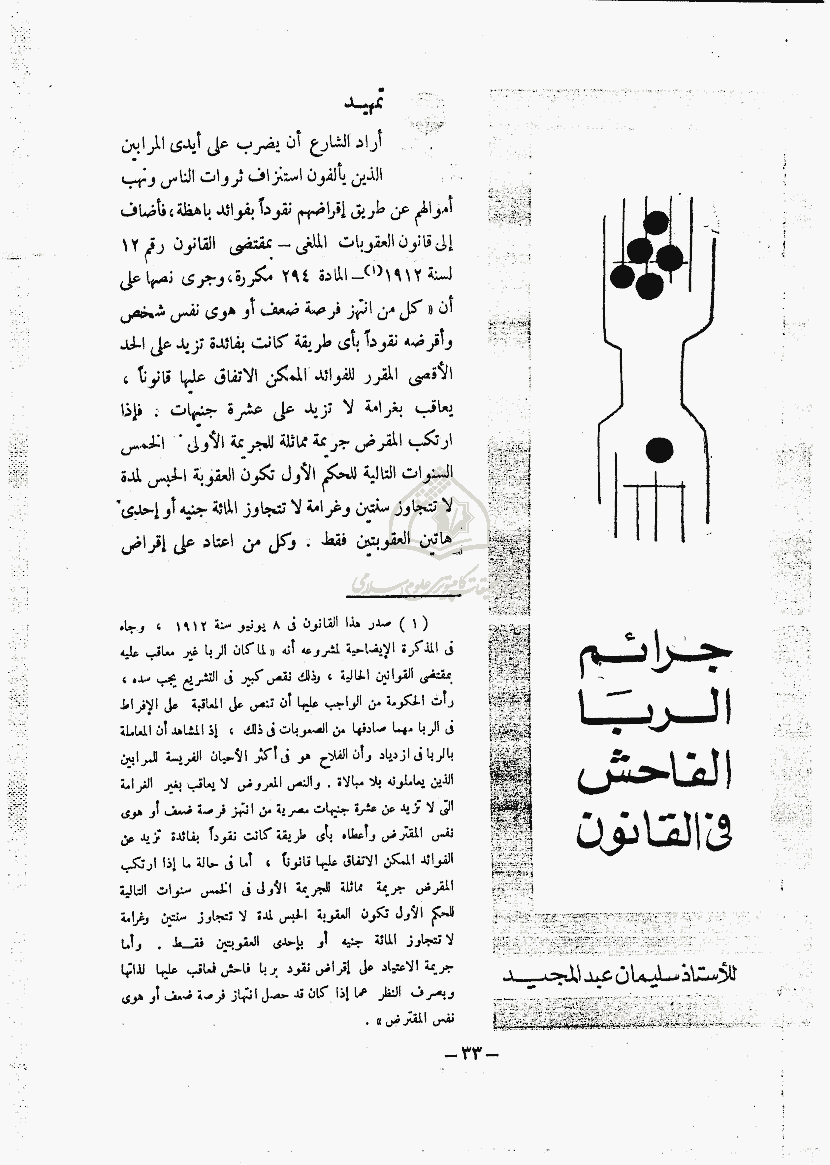 جرائم
الربا
الفاحش
في القانون
للأستاذ سليمان عبد المجيد
تمهيد
أراد الشارع أن يضرب على أيدى المرابين
الذين يألفون استنزاف ثروات الناس ونهب
أموالهم عن طريق إقراضهم نقوداً بفوائد باهظة، فأضاف
إلى قانون العقوبات الملغى – بمقتضى القانون رقم ١٢
لسنة ١٩١٢(١) – المادة ٢٩٤ مكررة، وجرى نصها على
أن « كل من انتهز فرصة ضعف أو هوى نفس شخص
وأقرضه نقوداً بأى طريقة كانت بفائدة تزيد على الحد
الأقصى المقرر للفوائد الممكن الاتفاق عليها قانوناً ،
يعاقب بغرامة لا تزيد على عشرة جنيهات . فإذا
ارتكب المقرض جريمة مماثلة للجريمة الأولى الخمس
السنوات التالية للحكم الأول تكون العقوبة الحبس لمدة
لا تتجاوز سنتين وغرامة لا تتجاوز المائة جنيه أو إحدى
هاتين العقوبتين فقط . وكل من اعتاد على إقراض
( ١ ) صدر هذا القانون فى ٨ يونيو سنة ١٩١٢ ، وجاء
فى المذكرة الإيضاحية لمشروعه أنه « لما كان الربا غير معاقب عليه
بمقتضى القوانين الحالية ، وذلك نقص كبير فى التشريع يجب سده ،
رأت الحكومة من الواجب عليها أن تنص على المعاقبة على الإفراط
فى الربا مهما صادفها من الصعوبات فى ذلك ، إذ المشاهد أن المعاملة
بالربا فى ازدياد وأن الفلاح هو فى أكثر الأحيان الفريسة للمرابين
الذين يعاملونه بلا مبالاة . والنص المعروض لا يعاقب بغير الغرامة
التى لا تزيد عن عشرة جنيهات مصرية من انتهز فرصة ضعف أو هوى
نفس المقترض وأعطاه بأى طريقة كانت نقوداً بفائدة تزيد عن
الفوائد الممكن الاتفاق عليها قانوناً ، أما فى حالة ما إذا ارتكب
المقرض جريمة مماثلة للجريمة الأولى فى الخمس سنوات التالية
للحكم الأول تكون العقوبة الحبس لمدة لا تتجاوز سنتين وغرامة
لا تتجاوز المائة جنيه أو بإحدى العقوبتين فقط . وأما
جريمة الاعتياد على إقراض نقود بربا فاحش فمعاقب عليها لذاتها
وبصرف النظر عما إذا كان قد حصل انتهاز فرصة ضعف أو هوى
نفس المقترض » .
– ٣٣ –